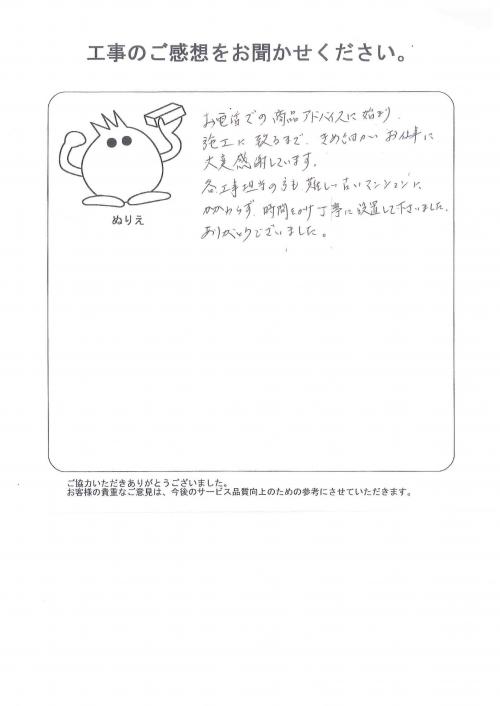 工事のご感想をお聞かせください。
お電話での商品アドバイスに始まり、
施工に致るまで、きめ細かいお仕事に
大変感謝しています。
各工事担当の方も難しい古いマンションに
かかわらず、時間をかけ丁寧に設置して下さいました。
ありがとうございました。
ぬりえ
ご協力いただきありがとうございました。
お客様の貴重なご意見は、今後のサービス品質向上のための参考にさせていただきます。